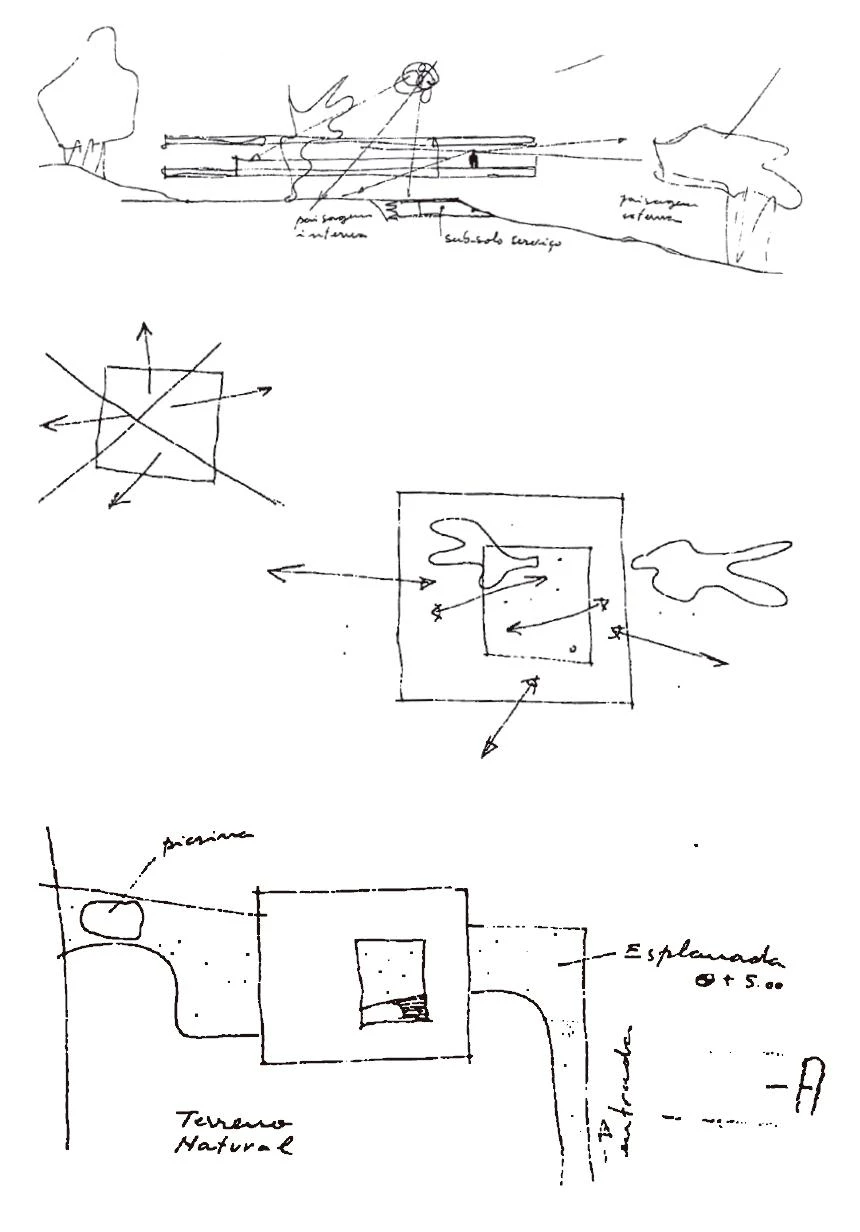 paisagem
interna
sub-solo serviço
paisagem
externa
piscina
Esplanada
+ 5.00
entrada
A
Terreno
Natural